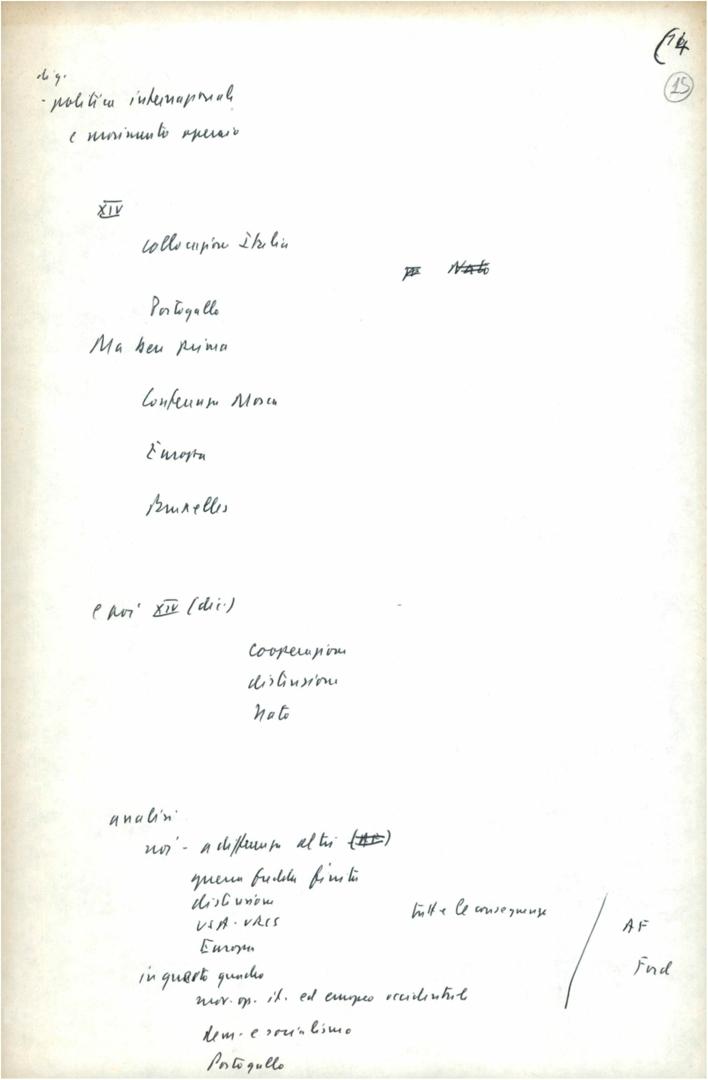 (14
15
dig.
- politica internazionale
e movimento operaio
XIV
collocazione Italia
Nato
Portogallo
Ma ben prima
Conferenza Mosca
Europa
Bruxelles
e poi XIV (dic.)
cooperazione
distensione
Nato
analisi
noi - a differenza altri
guerra fredda finita
distensione
USA - URSS
tutte le conseguenze
AF
Europa
Ford
in questo quadro
mov. op. it. ed europeo occidentale
dem. e socialismo
Portogallo